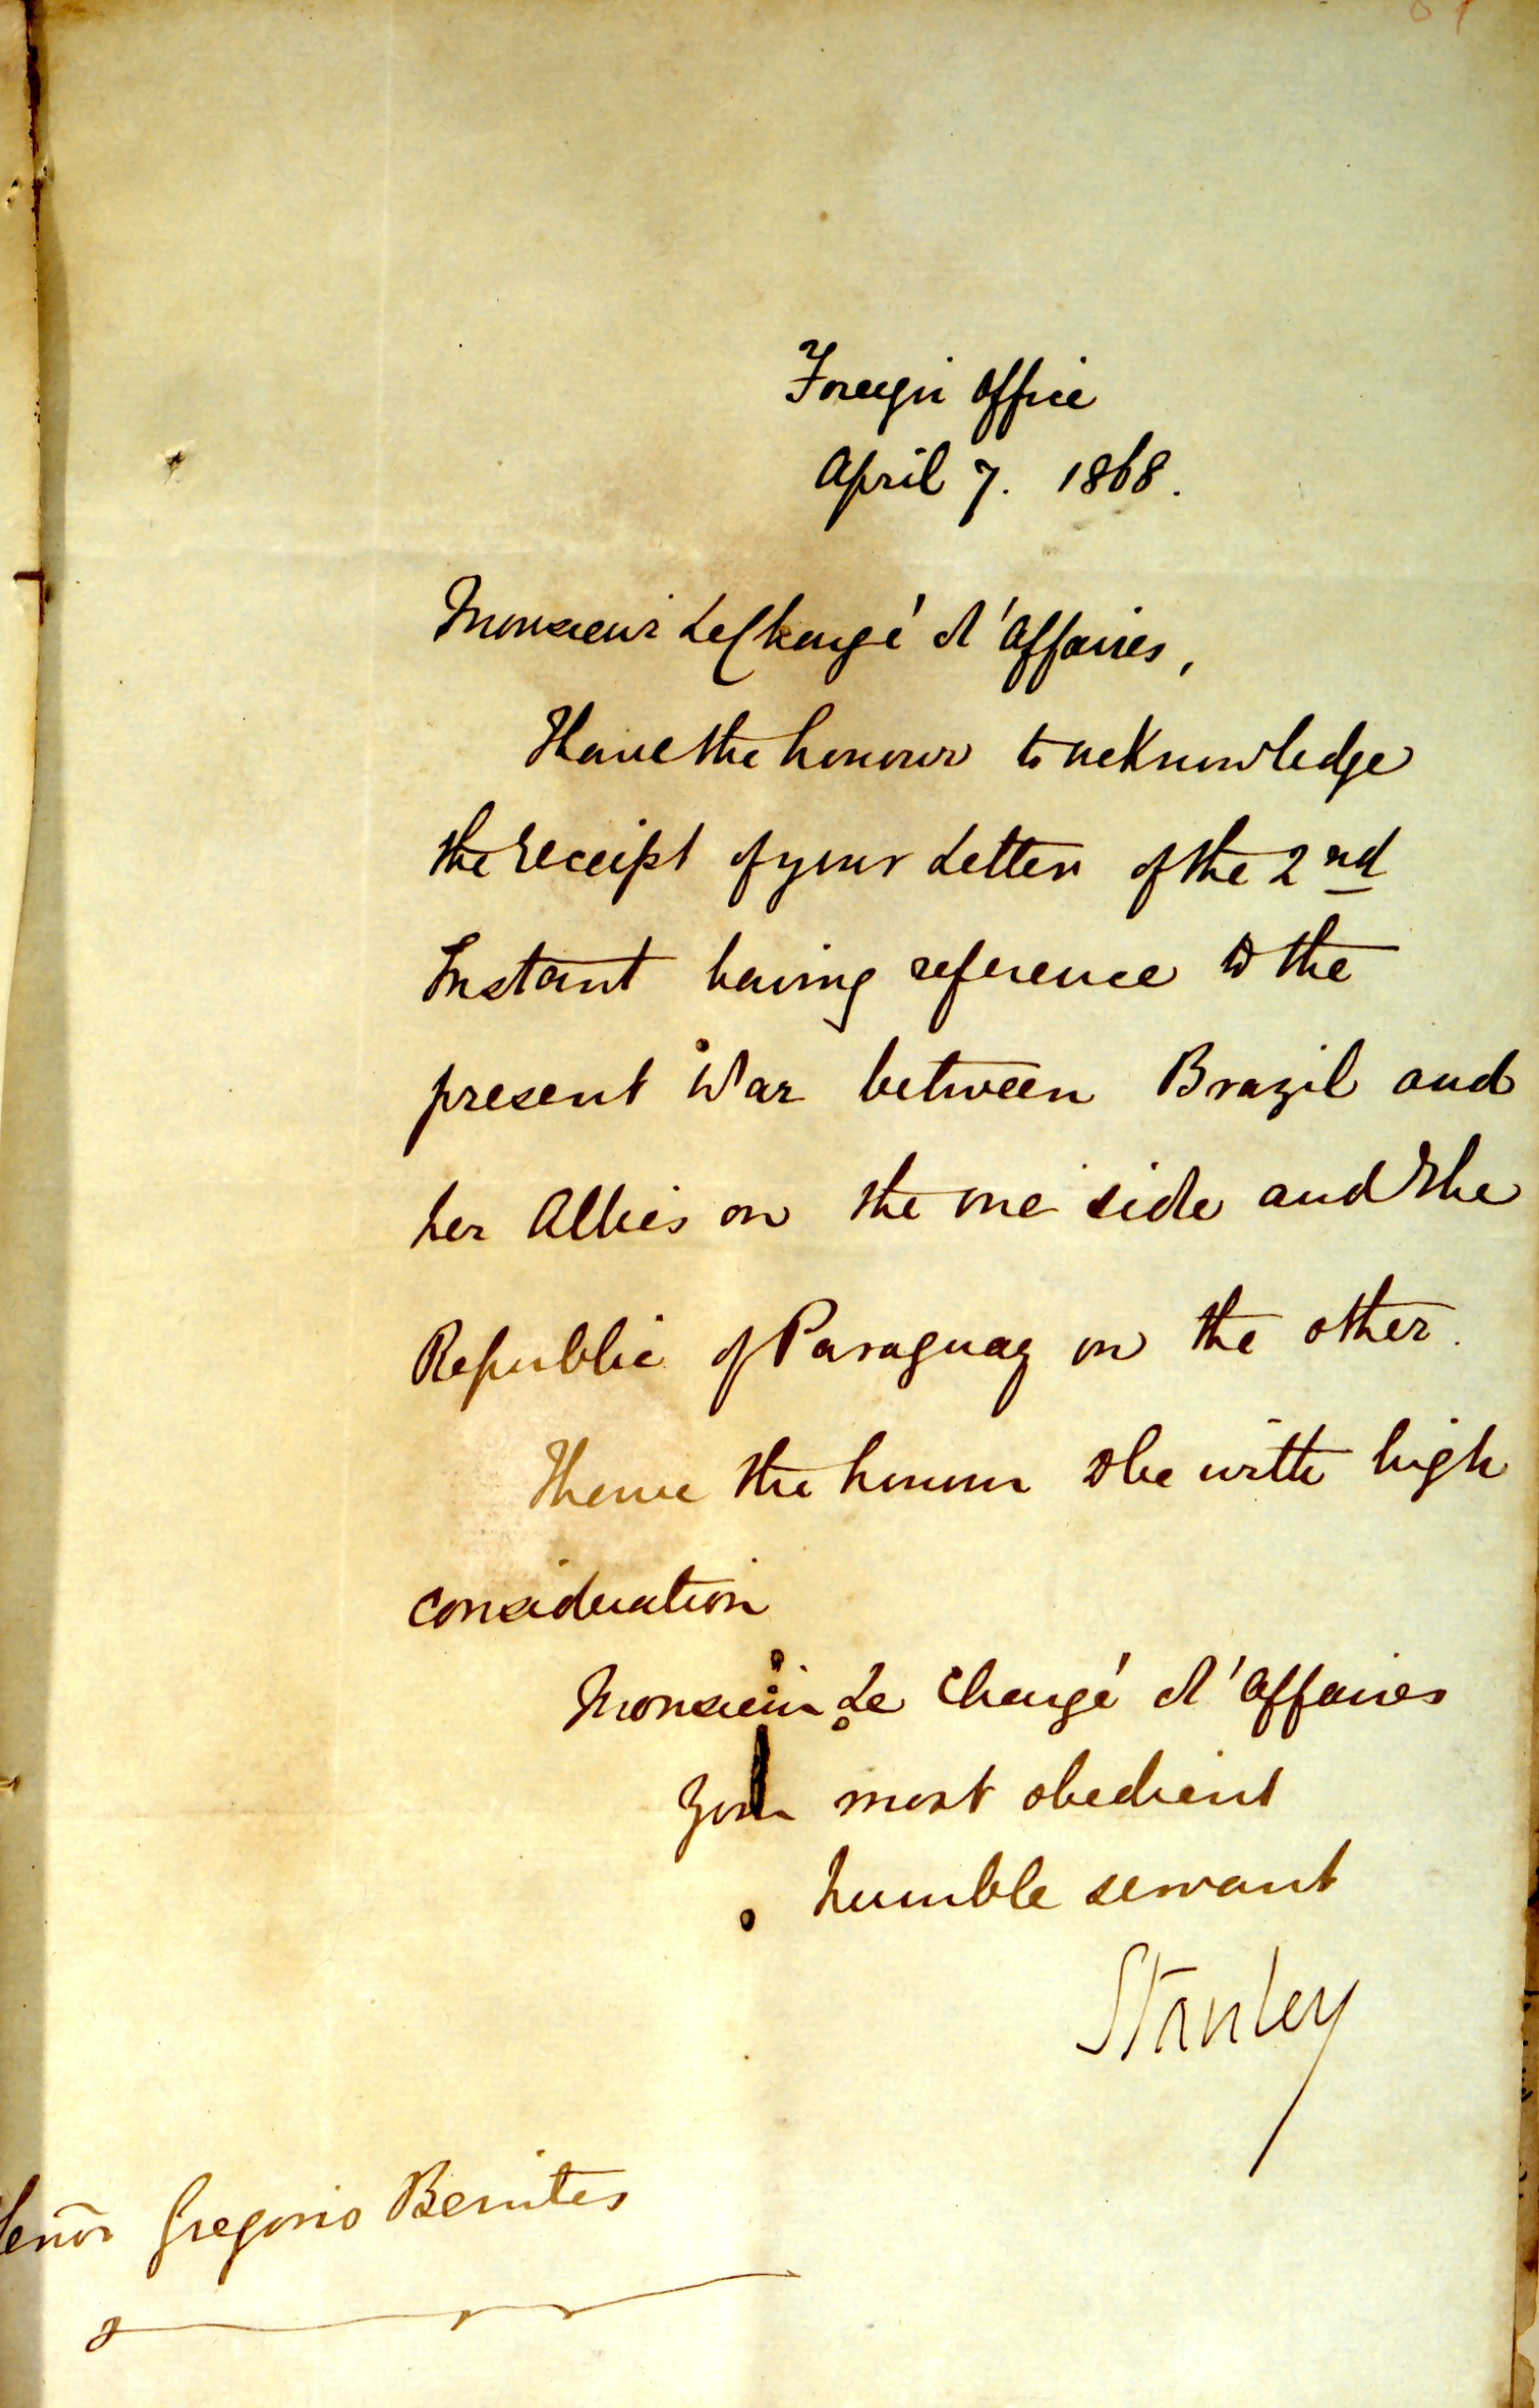 Foreign Office
April 7. 1868.
Monsieur Le Chargé d'Affaires,
I have the honour to acknowledge
the receipt of your Letter of the 2nd
Instant having reference to the
present War between Brazil and
her Allies on the one side and the
Republic of Paraguay on the other.
I have the honour to be with high
consideration
Monsieur Le Chargé d'Affaires
Your most obedient
humble servant
Stanley
Señor Gregorio Benites